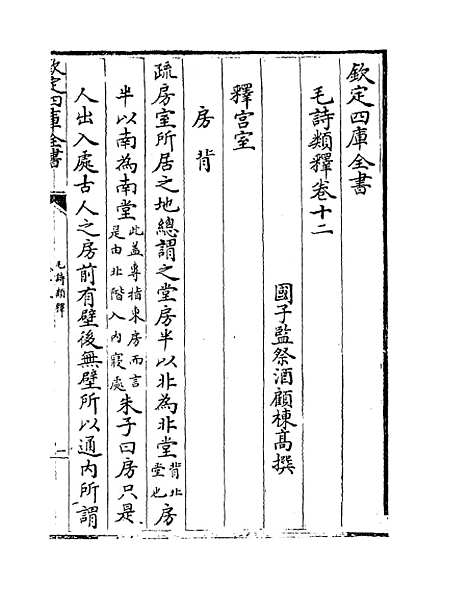 欽定四庫全書
毛詩類釋卷十二
國子監祭酒顧棟髙撰
釋宫室
房背
疏房室所居之地總謂之堂房半以北為北堂背北堂也房
半以南為南堂此葢専指東房而言是由北階入内寢處朱子曰房只是
人出入處古人之房前有壁後無壁所以通内所謂
欽定四庫全書
毛詩類釋